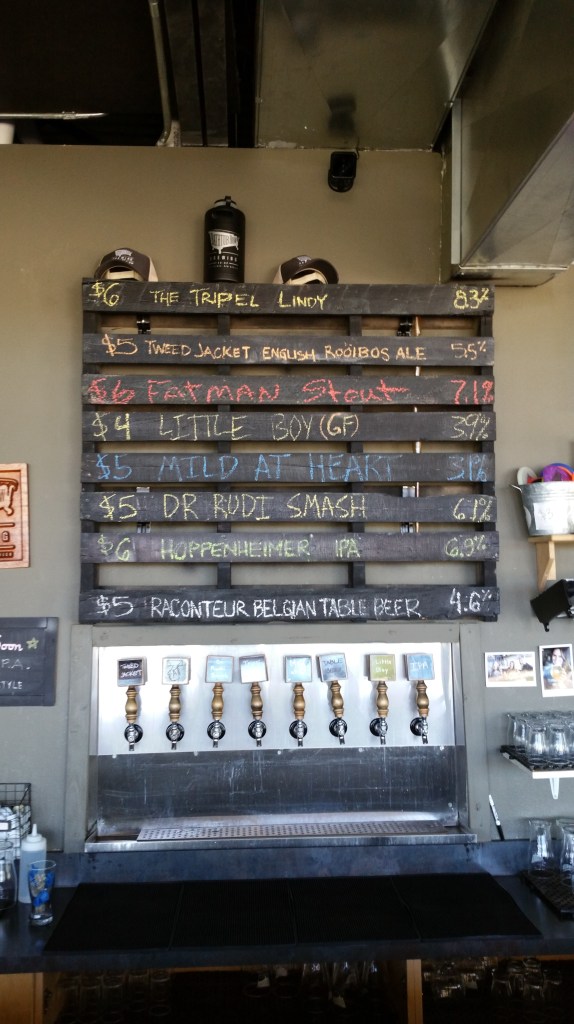 BREWING
$6 THE TRIPEL LINDY 8.3%
$5 TWEED JACKET ENGLISH ROOIBOS ALE 5.5%
$6 FATMAN Stout 7.1%
$4 LITTLE BOY (GF) 3.9%
$5 MILD AT HEART 3.1%
$5 DR. RUDI SMASH 6.1%
$6 HOPPENHEIMER IPA 6.9%
$5 RACONTEUR BELGIAN TABLE BEER 4.6%
Soon
P.A.
STYLE
TWEED JACKET
TABLE
Little Boy
IPA